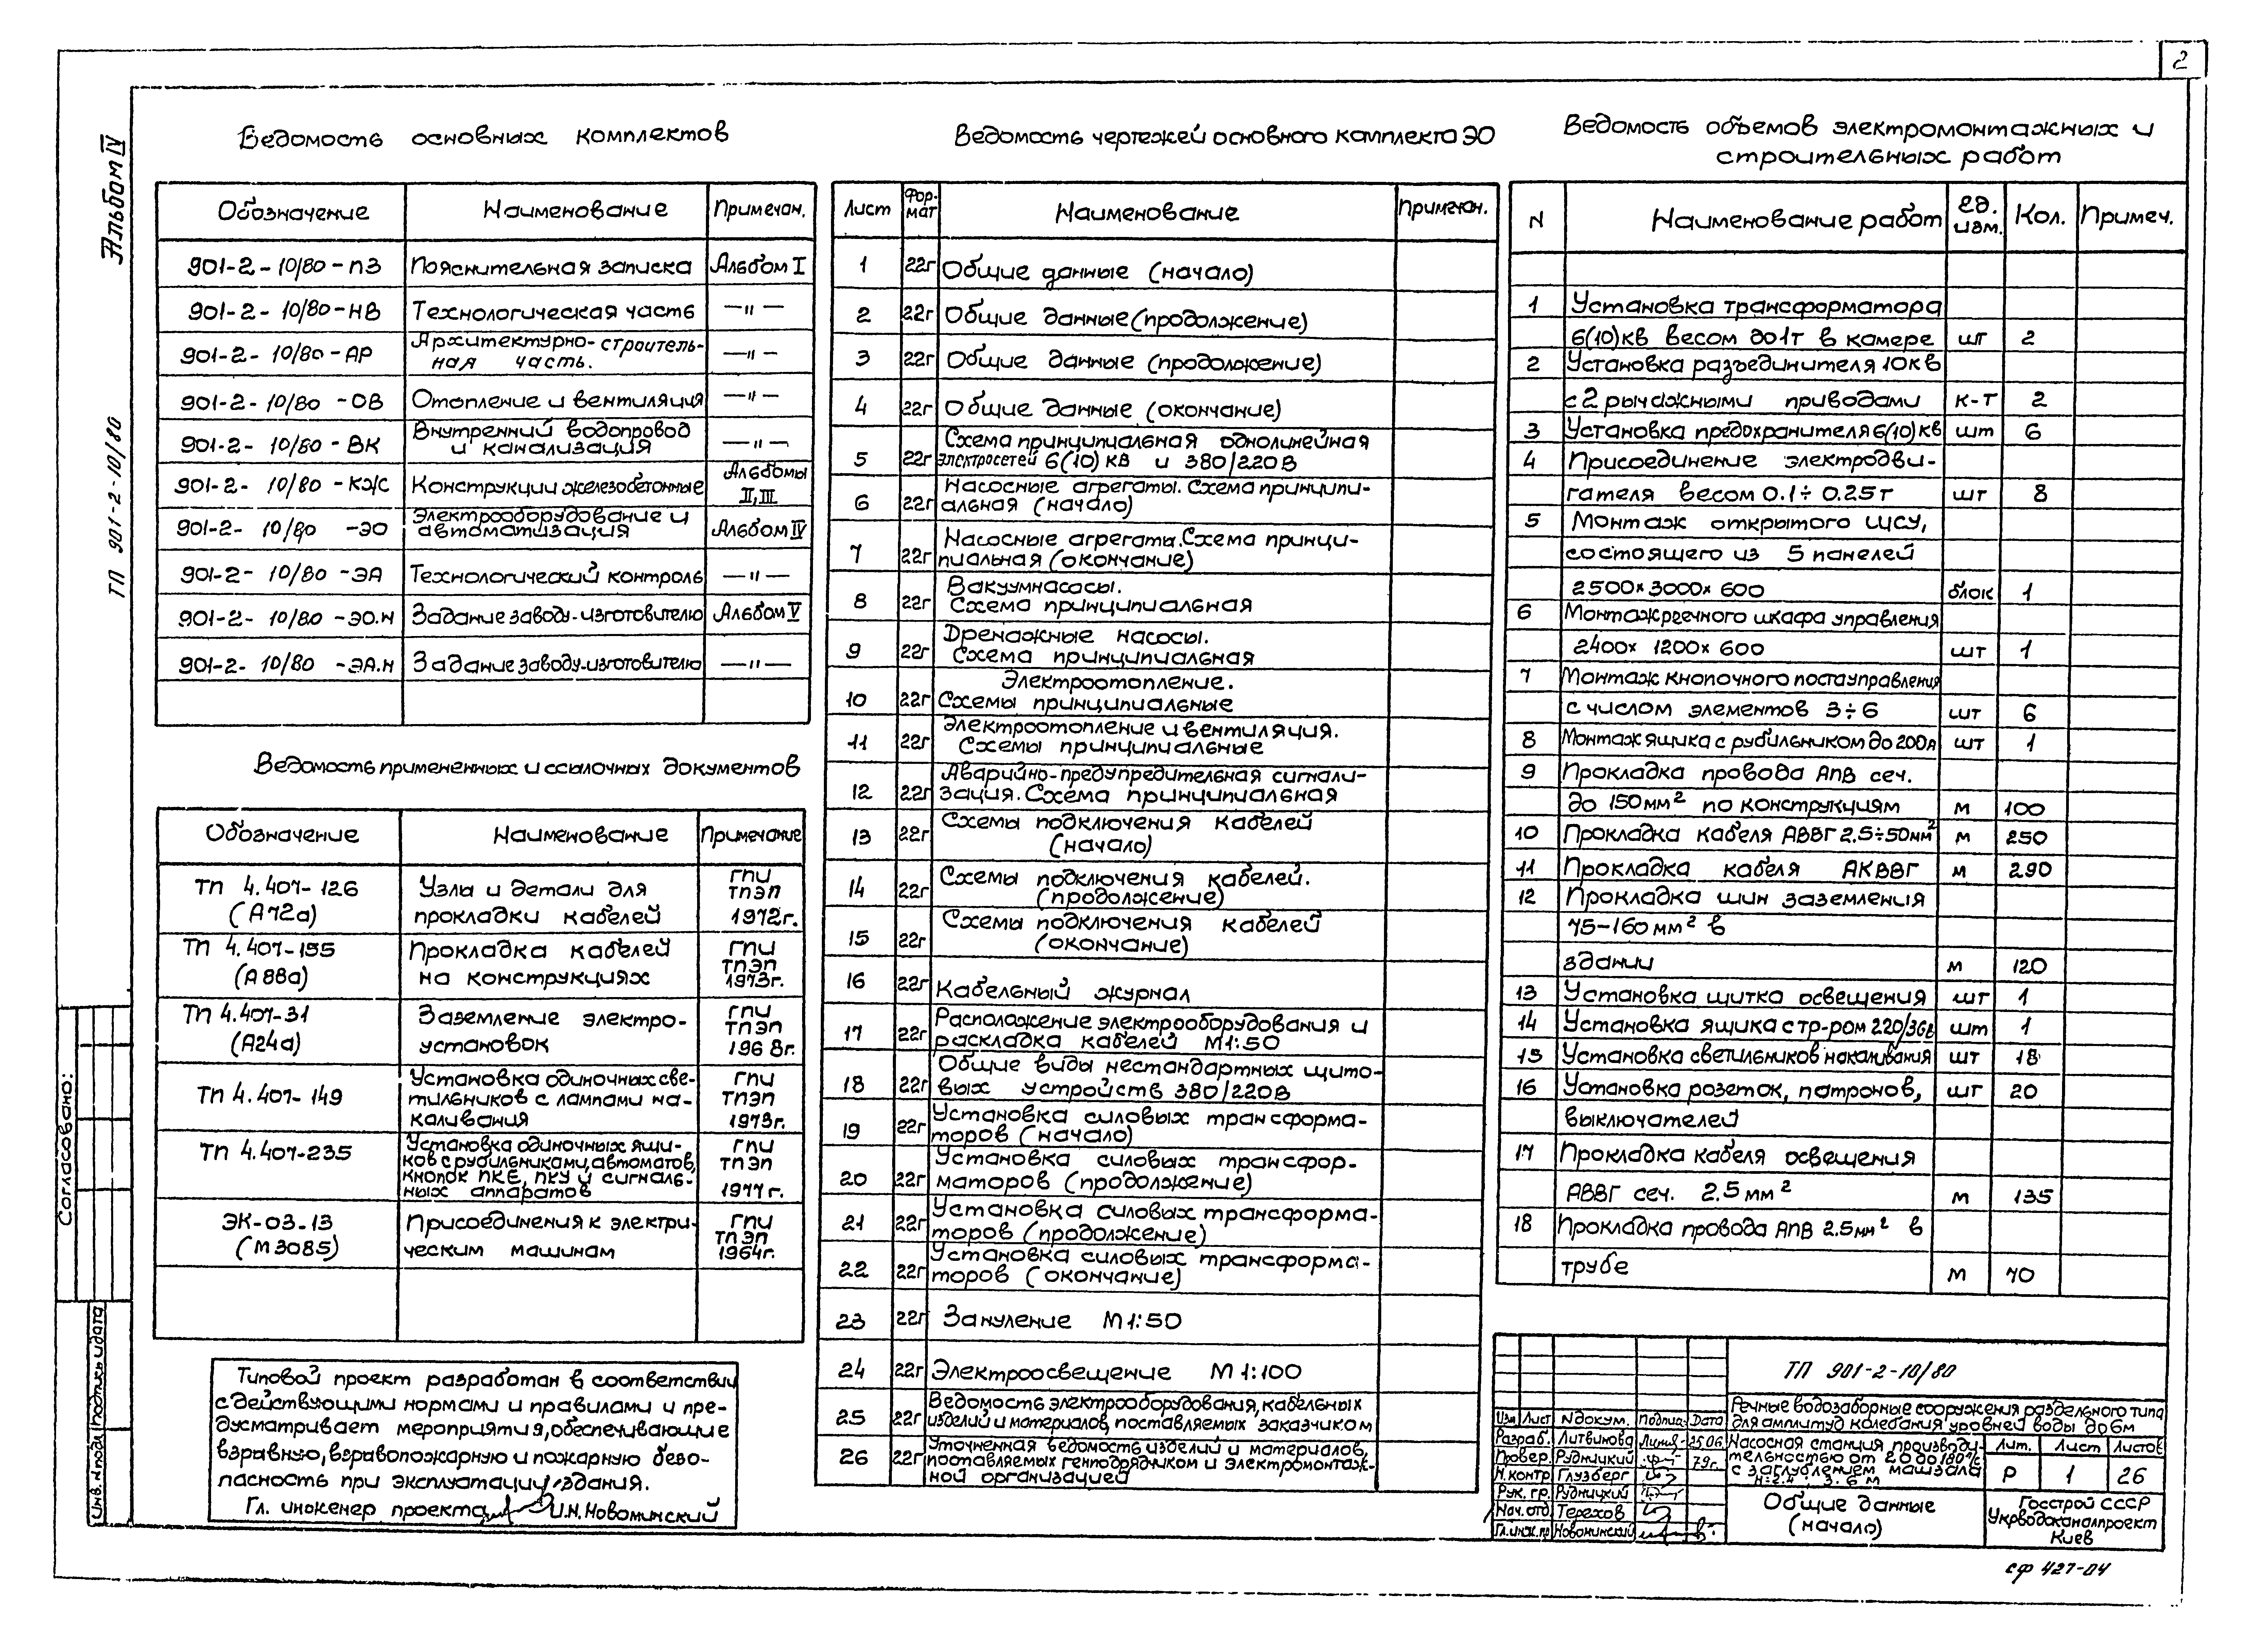 2
Альбом IV
ТП 901-2-10/80
Согласовано:
Инв. № подл
Подпись и дата
Ведомость основных комплектов
Обозначение Наименование Примечан.
901-2-10/80-ПЗ Пояснительная записка Альбом I
901-2-10/80-НВ Технологическая часть —"—
901-2-10/80-АР Архитектурно-строитель-
ная часть. —"—
901-2-10/80-ОВ Отопление и вентиляция —"—
901-2-10/80-ВК Внутренний водопровод
и канализация —"—
901-2-10/80-КЖ Конструкции железобетонные Альбомы
II, III
901-2-10/80-ЭО Электрооборудование и
автоматизация Альбом IV
901-2-10/80-ЭА Технологический контроль —"—
901-2-10/80-ЭО.И Задание заводу-изготовителю Альбом V
901-2-10/80-ЭА.И Задание заводу-изготовителю —"—
Ведомость примененных и ссылочных документов
Обозначение Наименование Примечание
ТП 4.407-126 Узлы и детали для ГПИ
ТПЭП
(А72а) прокладки кабелей 1972г.
ТП 4.407-155 Прокладка кабелей ГПИ
ТПЭП
(А88а) на конструкциях 1973г.
ТП 4.407-31 Заземление электро- ГПИ
ТПЭП
(А24а) установок 1968г.
Установка одиночных све- ГПИ
ТП 4.407-149 тильников с лампами на- ТПЭП
каливания 1973г.
Установка одиночных ящи- ГПИ
ТП 4.407-235 ков с рубильниками, автоматов, ТПЭП
кнопок ПКЕ, ПКУ и сигналь-
ных аппаратов 1977г.
ЭК-03-13 Присоединения к электри- ГПИ
ТПЭП
(М3085) ческим машинам 1964г.
Типовой проект разработан в соответствии
с действующими нормами и правилами и пре-
дусматривает мероприятия, обеспечивающие
взрывную, взравопожарную и пожарную безо-
пасность при эксплуатации здания.
Гл. инженер проекта И.Н. Новоминский
Ведомость чертежей основного комплекта ЭО
Лист Фор-
мат Наименование Примечан.
1 22г Общие данные (начало)
2 22г Общие данные (продолжение)
3 22г Общие данные (продолжение)
4 22г Общие данные (окончание)
Схема принципиальная однолинейная
5 22г электросетей 6(10) кВ и 380/220В
Насосные агрегаты. Схема принципи-
6 22г альная (начало)
Насосные агрегаты. Схема принци-
7 22г пиальная (окончание)
Вакуумнасосы.
8 22г Схема принципиальная
Дренажные насосы.
9 22г Схема принципиальная
Электроотопление.
10 22г Схемы принципиальные
Электроотопление и вентиляция.
11 22г Схемы принципиальные
Аварийно-предупредительная сигнали-
12 22г зация. Схема принципиальная
13 22г Схемы подключения кабелей
(начало)
14 22г Схемы подключения кабелей.
(продолжение)
15 22г Схемы подключения кабелей
(окончание)
16 22г Кабельный журнал
Расположение электрооборудования и
17 22г раскладка кабелей М1:50
Общие виды нестандартных щито-
18 22г вых устройств 380/220В
Установка силовых трансформа-
19 22г торов (начало)
Установка силовых трансфор-
20 22г маторов (продолжение)
Установка силовых трансформа-
21 22г торов (продолжение)
Установка силовых трансформа-
22 22г торов (окончание)
23 22г Зануление М1:50
24 22г Электроосвещение М1:100
Ведомость электрооборудования, кабельных
25 22г изделий и материалов, поставляемых заказчиком
Уточненная ведомость изделий и материалов,
26 22г поставляемых генподрядчиком и электромонтаж-
ной организацией
Ведомость объемов электромонтажных и
строительных работ
N Наименование работ ед.
изм. Кол. Примеч.
1 Установка трансформатора
6(10)кв весом до 1т в камере шт 2
2 Установка разъединителя 10кв
с 2 рычажными приводами к-т 2
3 Установка предохранителя 6(10)кв шт 6
4 Присоединение электродви-
гателя весом 0.1÷0.25т шт 8
5 Монтаж открытого ЩСУ,
состоящего из 5 панелей
2500×3000×600 блок 1
6 Монтаж реечного шкафа управления
2400×1200×600 шт 1
7 Монтаж кнопочного поста управления
с числом элементов 3÷6 шт 6
8 Монтаж ящика с рубильником до 200а шт 1
9 Прокладка провода АПВ сеч.
до 150мм² по конструкциям м 100
10 Прокладка кабеля АВВГ 2.5÷50мм² м 250
11 Прокладка кабеля АКВВГ м 290
12 Прокладка шин заземления
75-160мм² в
здании м 120
13 Установка щитка освещения шт 1
14 Установка ящика с тр-ром 220/36в шт 1
15 Установка светильников накаливания шт 18
16 Установка розеток, патронов, шт 20
выключателей
17 Прокладка кабеля освещения
АВВГ сеч. 2.5мм² м 135
18 Прокладка провода АПВ 2.5мм² в
трубе м 70
ТП 901-2-10/80
Речные водозаборные сооружения раздельного типа
для амплитуд колебания уровней воды до 6м
Изм Лист N докум. Подпис. Дата
Разраб. Литвинова 25.06
Провер. Рудницкий 79г.
Н.контр Глузберг
Рук. гр. Рудницкий
Нач. отд Терехов
Гл. инж. пр Новоминский
Насосная станция производи-
тельностью от 20 до 180 л/с
с заглублением машзала
Н=2.4; 3.6 м
Лит. Лист Листов
Р 1 26
Общие данные
(начало)
Госстрой СССР
Укрводоканалпроект
Киев
сф 427-04